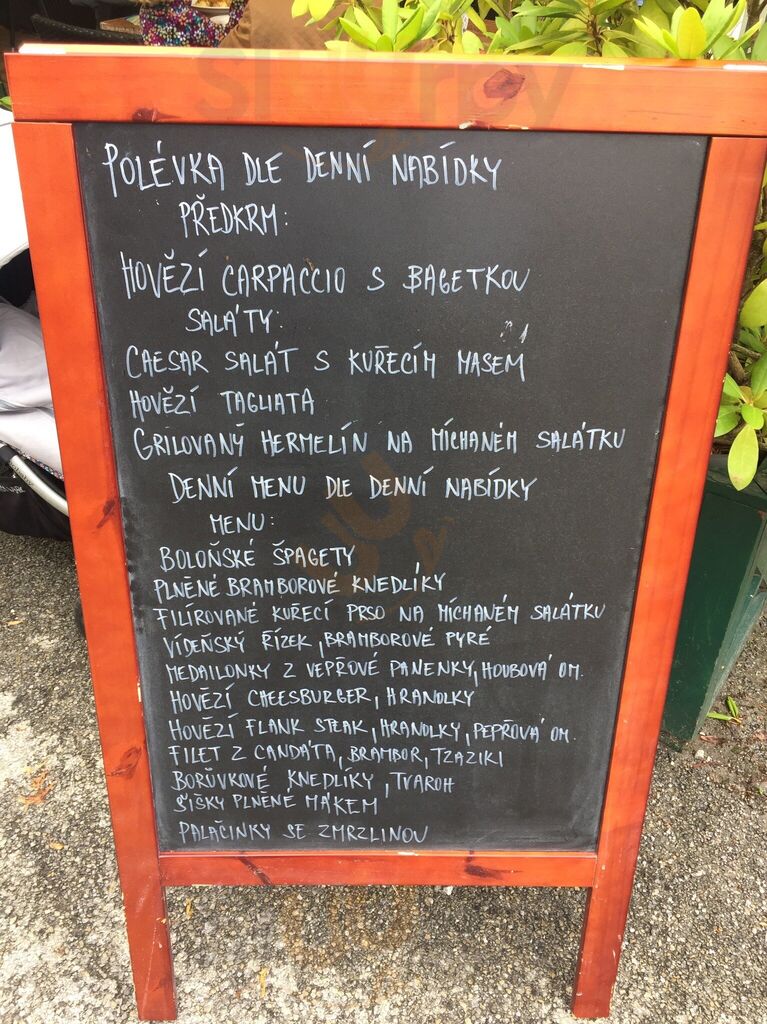 POLÉVKA DLE DENNÍ NABÍDKY
PŘEDKRM:
HOVĚZÍ CARPACCIO S BAGETKOU
SALÁTY:
CAESAR SALÁT S KUŘECÍM MASEM
HOVĚZÍ TAGLIATA
GRILOVANÝ HERMELÍN NA MÍCHANÉM SALÁTKU
DENNÍ MENU DLE DENNÍ NABÍDKY
MENU:
BOLOŇSKÉ ŠPAGETY
PLNĚNÉ BRAMBOROVÉ KNEDLÍKY
FILÍROVANÉ KUŘECÍ PRSO NA MÍCHANÉM SALÁTKU
VÍDEŇSKÝ ŘÍZEK, BRAMBOROVÉ PYRÉ
MEDAILONKY Z VEPŘOVÉ PANENKY, HOUBOVÁ OM.
HOVĚZÍ CHEESBURGER, HRANOLKY
HOVĚZÍ FLANK STEAK, HRANOLKY, PEPŘOVÁ OM.
FILET Z CANDÁTA, BRAMBOR, TZAZIKI
BORŮVKOVÉ KNEDLÍKY, TVAROH
ŠIŠKY PLNĚNÉ MÁKEM
PALAČINKY SE ZMRZLINOU